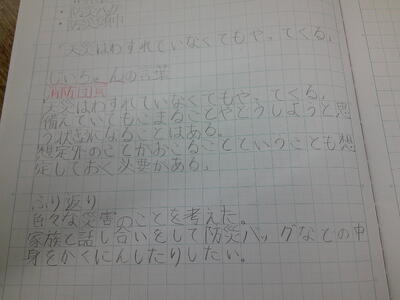 ・防災バッグ
・防災
「天災はわすれていなくてもやってくる」
じいちゃんの言葉
消防団員
天災はわすれていなくてもやってくる。
備えていてもこまることやどうしようと思
う状きになることはある。
想定外のことがおこることということも想
定しておく必要がある。
ふり返り
色々な災害のことを考えた。
家族と話し合いをして防災バッグなどの中
身をかくにんしたりしたい。